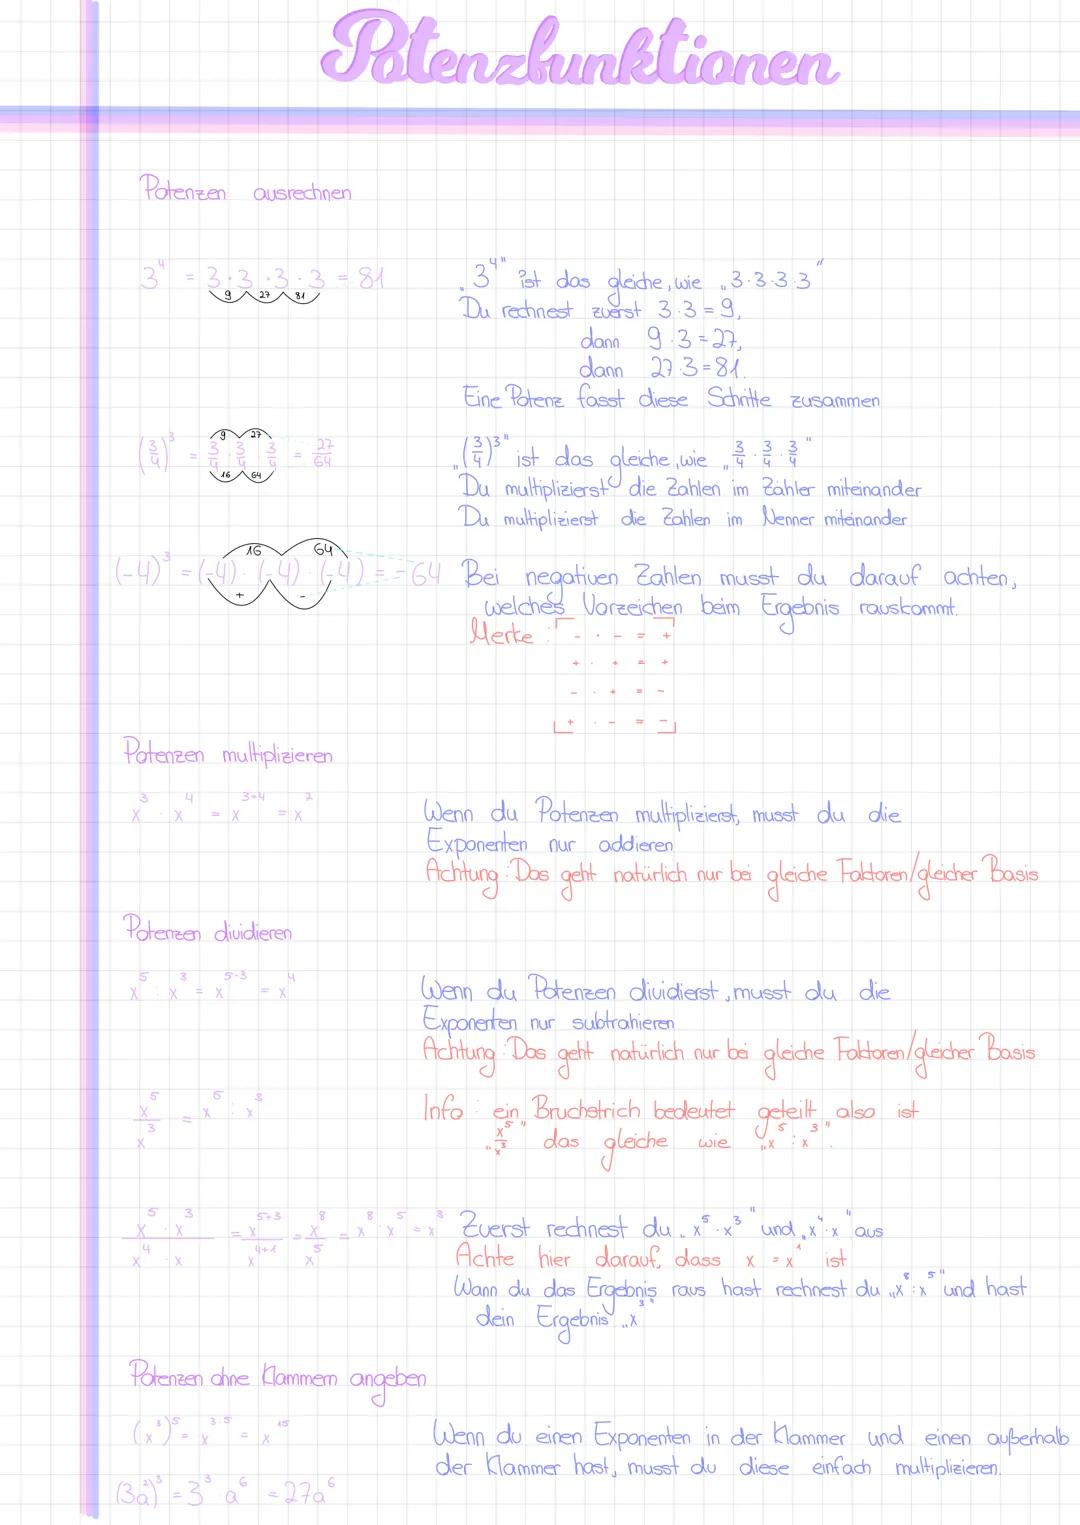 Potenzfunktionen
Potenzen ausrechnen
3⁴ = 3·3·3·3 = 81
9 27 81
„3⁴" ist das gleiche, wie „3·3·3·3"
Du rechnest zuerst 3·3=9,
dann 9·3=27,
dann 27·3=81.
Eine Potenz fasst diese Schritte zusammen
9 27
(3/4)³ = 3/4 · 3/4 · 3/4 = 27/64
16 64
„(3/4)³" ist das gleiche, wie „3/4 · 3/4 · 3/4"
Du multiplizierst die Zahlen im Zähler miteinander
Du multiplizierst die Zahlen im Nenner miteinander
16 64
(-4)³ = (-4)·(-4)·(-4) = -64
+ -
Bei negativen Zahlen musst du darauf achten,
welches Vorzeichen beim Ergebnis rauskommt.
Merke: - · - = +
+ · + = +
- · + = -
+ · - = -
Potenzen multiplizieren
x³ · x⁴ = x³⁺⁴ = x²
Wenn du Potenzen multiplizierst, musst du die
Exponenten nur addieren
Achtung: Das geht natürlich nur bei gleiche Faktoren/gleicher Basis
Potenzen dividieren
x⁵ : x³ = x⁵⁻³ = x⁴
Wenn du Potenzen dividierst, musst du die
Exponenten nur subtrahieren
Achtung: Das geht natürlich nur bei gleiche Faktoren/gleicher Basis
x⁵/x³ = x⁵ : x³
Info: ein Bruchstrich bedeutet geteilt, also ist
„x⁵/x³" das gleiche wie „x⁵ : x³".
x⁵·x³/x⁴·x = x⁵⁺³/x⁴⁺¹ = x⁸/x⁵ = x⁸ : x⁵ = x³
Zuerst rechnest du „x⁵·x³" und „x⁴·x" aus
Achte hier darauf, dass x = x¹ ist
Wann du das Ergebnis raus hast rechnest du „x⁸:x⁵" und hast
dein Ergebnis „x³"
Potenzen ohne Klammern angeben
(x³)⁵ = x³·⁵ = x¹⁵
Wenn du einen Exponenten in der Klammer und einen außerhalb
der Klammer hast, musst du diese einfach multiplizieren.
(3a²)³ = 3³·a⁶ = 27a⁶